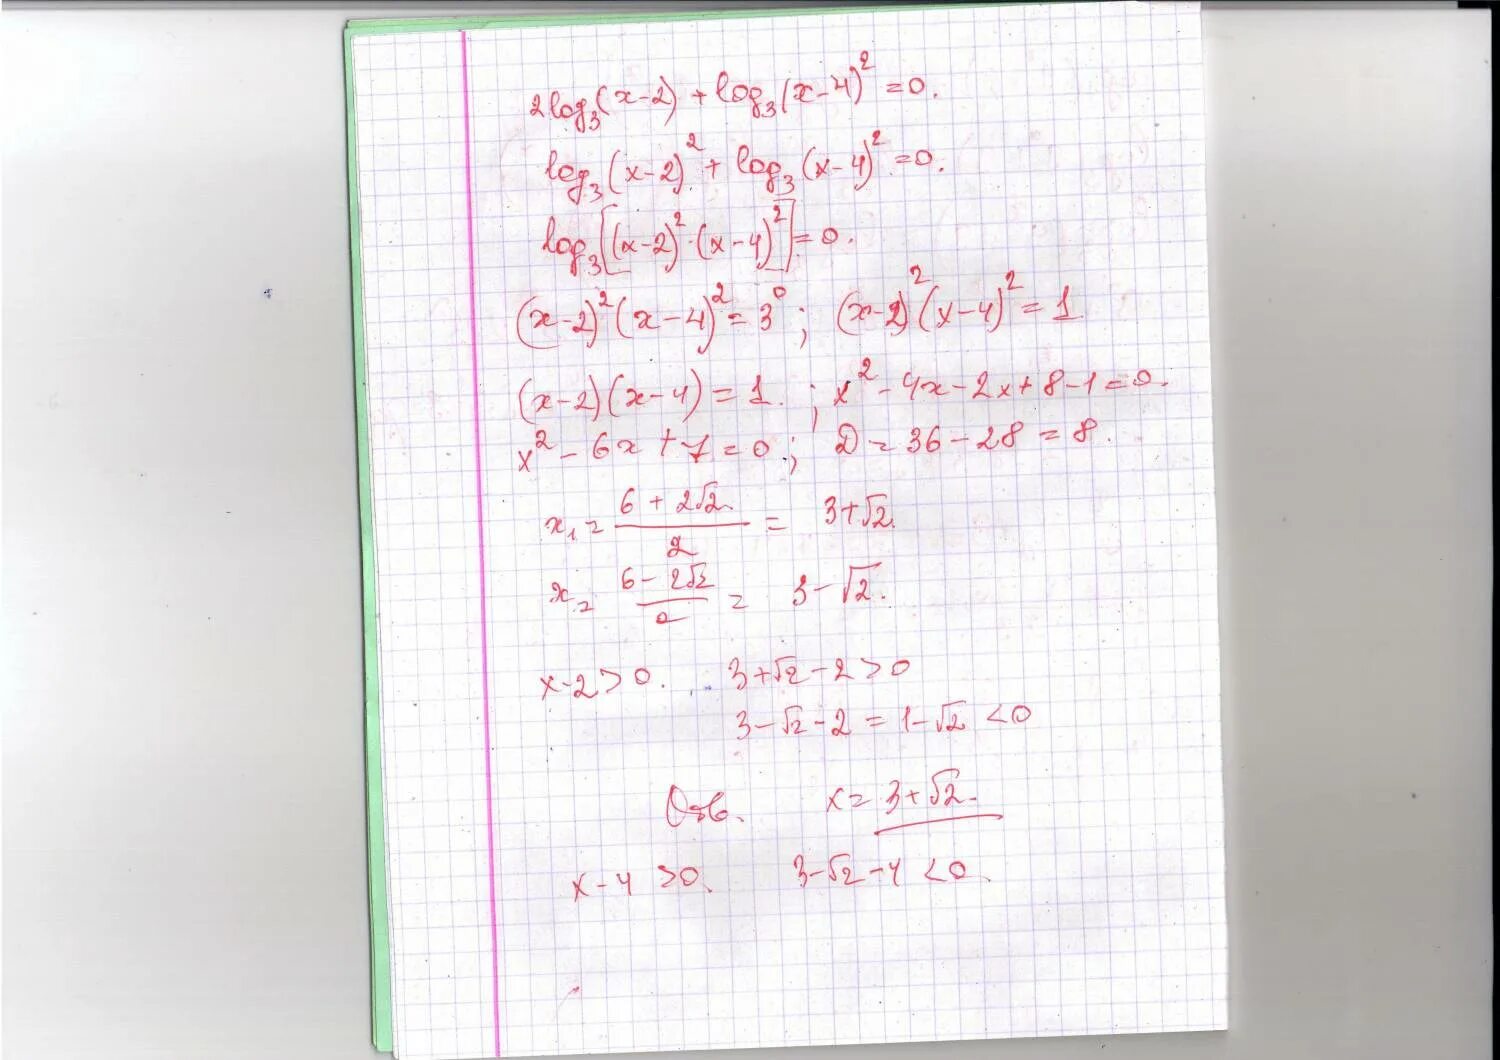 2log₃(x-2) + log₃(x-4)² = 0.
log₃(x-2)² + log₃(x-4)² = 0.
log₃[(x-2)²·(x-4)²] = 0.
(x-2)²(x-4)² = 3⁰ ; (x-2)²(x-4)² = 1
(x-2)(x-4) = 1. ; x² - 4x - 2x + 8 - 1 = 0.
x² - 6x + 7 = 0 ; D = 36 - 28 = 8.
x₁ = (6 + 2√2)/2 = 3+√2.
x₂ = (6 - 2√2)/2 = 3-√2.
x-2 > 0. 3+√2-2 > 0
3-√2-2 = 1-√2 < 0
Отв. x = 3+√2.
x-4 > 0. 3-√2-4 < 0.